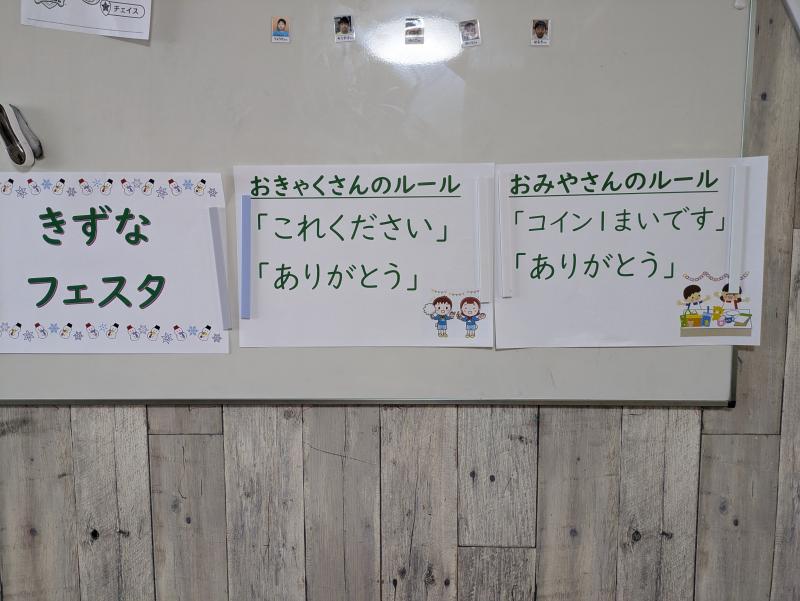 チェイス
きずな
フェスタ
おきゃくさんのルール
「これください」
「ありがとう」
おみやさんのルール
「コイン1まいです」
「ありがとう」